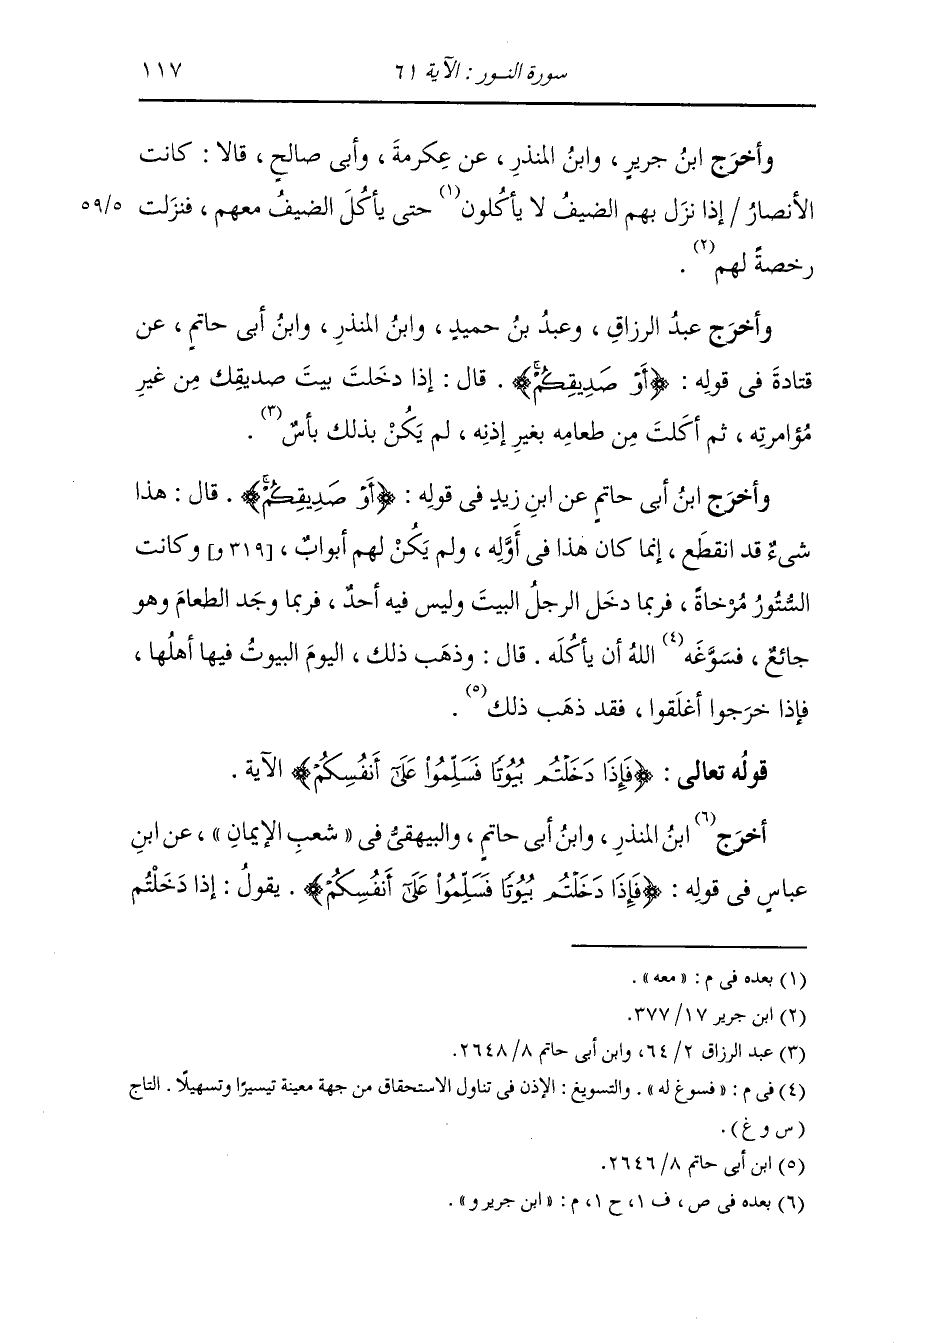 سورة النــور : الآية ٦١
١١٧
وأخرَج ابنُ جريرٍ ، وابنُ المنذرِ ، عن عِكرمةَ ، وأبى صالحٍ ، قالا : كانت
الأنصارُ / إذا نزَل بهم الضيفُ لا يأكلون(١) حتى يأكُلَ الضيفُ معهم ، فنزلت ٥٩/٥
رخصةً لهم(٢) .
وأخرَج عبدُ الرزاقِ ، وعبدُ بنُ حميدٍ ، وابنُ المنذرِ ، وابنُ أبى حاتمٍ ، عن
قتادةَ فى قولِه : ﴿أَوْ صَدِيقِكُمْۚ﴾ . قال : إذا دخَلتَ بيتَ صديقِك مِن غيرِ
مُؤامرتِه ، ثم أكَلتَ مِن طعامِه بغيرِ إذنِه ، لم يَكُنْ بذلك بأسٌ(٣) .
وأخرَج ابنُ أبى حاتمٍ عن ابنِ زيدٍ فى قولِه : ﴿أَوْ صَدِيقِكُمْۚ﴾ . قال : هذا
شىءٌ قد انقطَع ، إنما كان هذا فى أَوَّلِه ، ولم يَكُنْ لهم أبوابٌ ، [٣١٩و] وكانت
السُّتُورُ مُرْخاةً ، فربما دخَل الرجلُ البيتَ وليس فيه أحدٌ ، فربما وجَد الطعامَ وهو
جائعٌ ، فسَوَّغَه(٤) اللهُ أن يأكُلَه . قال : وذهَب ذلك ، اليومَ البيوتُ فيها أهلُها ،
فإذا خرَجوا أغلَقوا ، فقد ذهَب ذلك(٥) .
قولُه تعالى : ﴿فَإِذَا دَخَلْتُم بُيُوتًا فَسَلِّمُوا۟ عَلَىٰٓ أَنفُسِكُمْ﴾ الآية .
أخرَج(٦) ابنُ المنذرِ ، وابنُ أبى حاتمٍ ، والبيهقىُّ فى « شعبِ الإيمانِ » ، عن ابنِ
عباسٍ فى قولِه : ﴿فَإِذَا دَخَلْتُم بُيُوتًا فَسَلِّمُوا۟ عَلَىٰٓ أَنفُسِكُمْ﴾ . يقولُ : إذا دَخَلْتُم
(١) بعده فى م : « معه » .
(٢) ابن جرير ١٧/ ٣٧٧.
(٣) عبد الرزاق ٢/ ٦٤، وابن أبى حاتم ٨/ ٢٦٤٨.
(٤) فى م : « فسوغ له » . والتسويغ : الإذن فى تناول الاستحقاق من جهة معينة تيسيرًا وتسهيلًا . التاج
( س و غ ) .
(٥) ابن أبى حاتم ٨/ ٢٦٤٦.
(٦) بعده فى ص ، ف ١، ح ١، م : « ابن جرير و » .